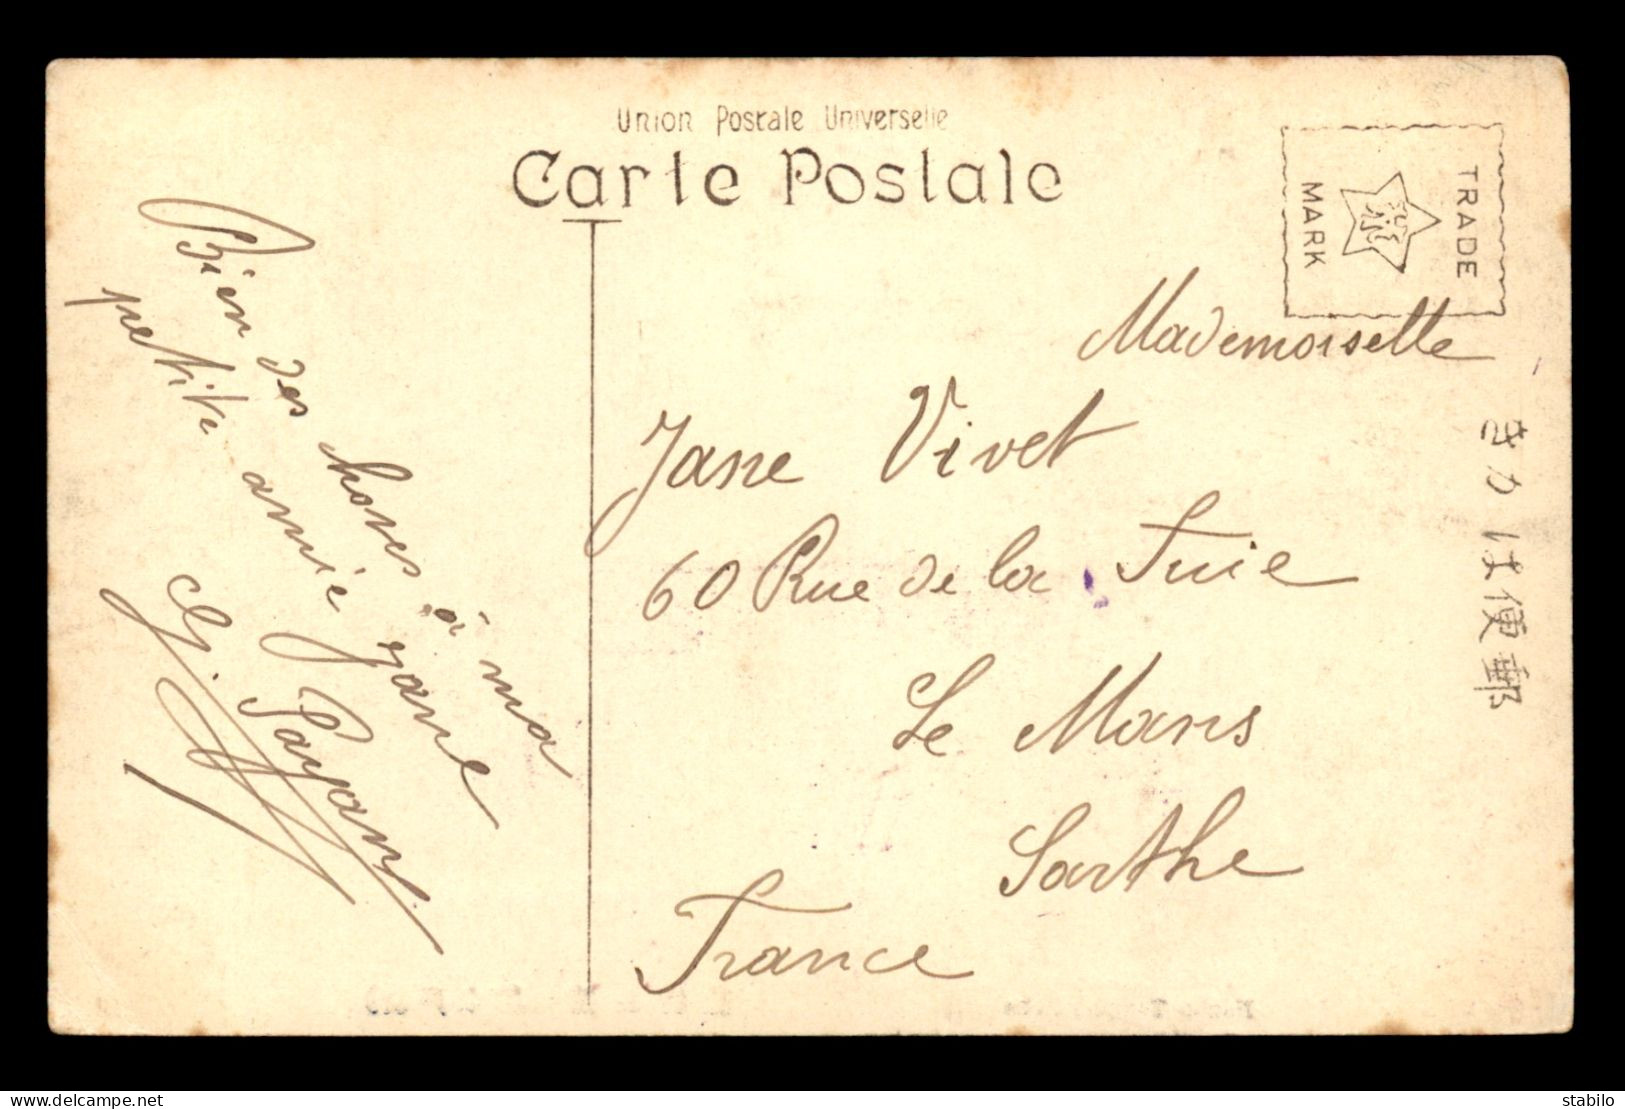 Union Postale Universelle
Carte Postale
TRADE
MARK
きかは便郵
Bien des choses à ma
petite amie Jane
G. Payany
Mademoiselle
Jane Vivet
60 Rue de la Suie
Le Mans
Sarthe
France
delcampe.net
stabilo